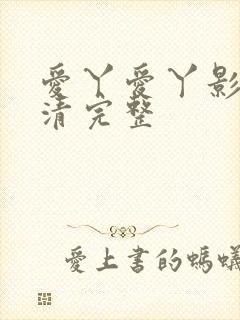 愛丫愛丫影
清完整
愛上書的螞蟻